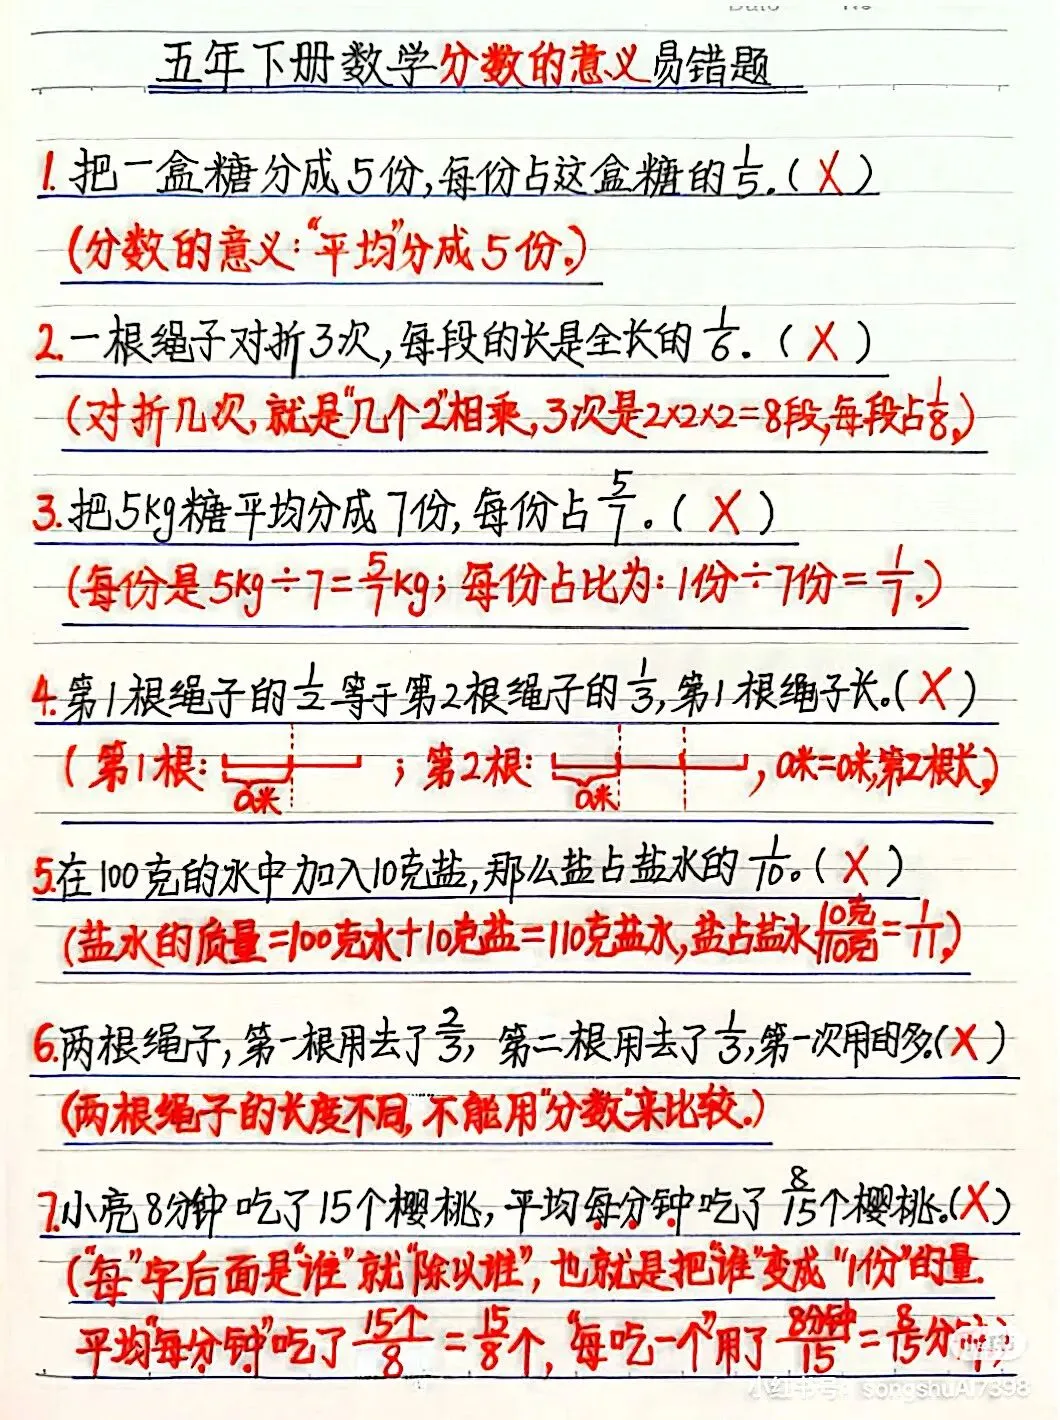 五年下册数学分数的意义易错题
1.把一盒糖分成5份,每份占这盒糖的1/5.(X)
(分数的意义:"平均"分成5份.)
2.一根绳子对折3次,每段的长是全长的1/6.(X)
(对折几次,就是"几个2"相乘,3次是2x2x2=8段,每段占1/8.)
3.把5kg糖平均分成7份,每份占5/7。(X)
(每份是5kg÷7=5/7kg;每份占比为:1份÷7份=1/7.)
4.第1根绳子的1/2等于第2根绳子的1/3,第1根绳子长。(X)
(第1根: ;第2根: ,a米=a米,第2根长.)
a米 a米
5.在100克的水中加入10克盐,那么盐占盐水的1/10。(X)
(盐水的质量=100克水+10克盐=110克盐水,盐占盐水10克/110克=1/11.)
6.两根绳子,第一根用去了2/3,第二根用去了1/3,第一次用的多.(X)
(两根绳子的长度不同,不能用"分数"来比较.)
7.小亮8分钟吃了15个樱桃,平均每分钟吃了8/15个樱桃.(X)
("每"字后面是"谁"就"除以谁",也就是把"谁"变成"1份"的量.
平均"每分钟"吃了15个/8=15/8个,"每吃一个"用了8分钟/15=8/15分
小红书号:songshuAI7398